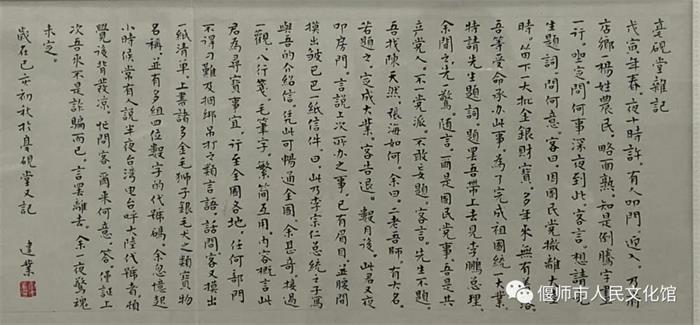 真硯堂雜記
戊寅年春，夜十时許，有人叩門，迎入，乃府
店鄉楊姓農民，略而熟，知是倒騰字畫
一行，坐定問何事深夜到此，客言，想請先
生題詞，問何意，客曰，因國民党撤離大陸
時，留下一大批金銀財寶，多年來無有着落
吾等受命承办此事，為了完成祖國統一大業，
特請先生題詞，題罢吾帶上去見李鵬总理，
余聞之先驚，随言，一而是國民党事，吾是共
産党人，不一党派，不敢妄題，客言，先生不題，
吾找陳天然、張海如何，余曰，二老吾師，有大名，
若題之，定成大業，客告退。數月後，此君又夜
叩房門，言說上次所办之事，已有眉目，並腰間
摸出皱巴巴一紙信件，曰，此乃李宗仁总統之手寫
與吾的介紹信，凭此可暢通全國，余甚奇，接過
一觀，八行箋，毛筆字，繁简互用，内容概言此
君為尋寶事宜，行至全國各地，任何部門
不得刁難及捆綁吊打之類言語，話間客又摸出
一紙清單，上書諸多金毛狮子銀毛犬之類寶物
名稱，並有多組四位數字的代號碼，余忽憶起
小時候常有人説半夜台湾电台呼大陸代號者，頓
覺後背發凉，忙問客，爾來何意，答，僅証上
次吾來不是詐騙而已，言罢離去，余一夜驚魂
未定。
歲在己亥初秋於真硯堂又記 建業
偃师市人民文化馆